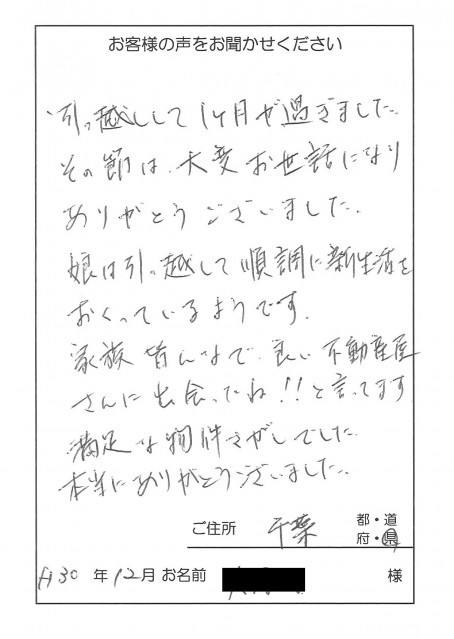 お客様の声をお聞かせください
引っ越しして1ヶ月が過ぎました。
その節は、大変お世話になり
ありがとうございました。
娘は引っ越して順調に新生活を
おくっているようです。
家族皆んなで、良い不動産屋
さんに出会ったね!!と言ってます
満足な物件さがしでした。
本当にありがとうございました。
ご住所 千葉 都・道
府・県
H30 年 12月 お名前 様